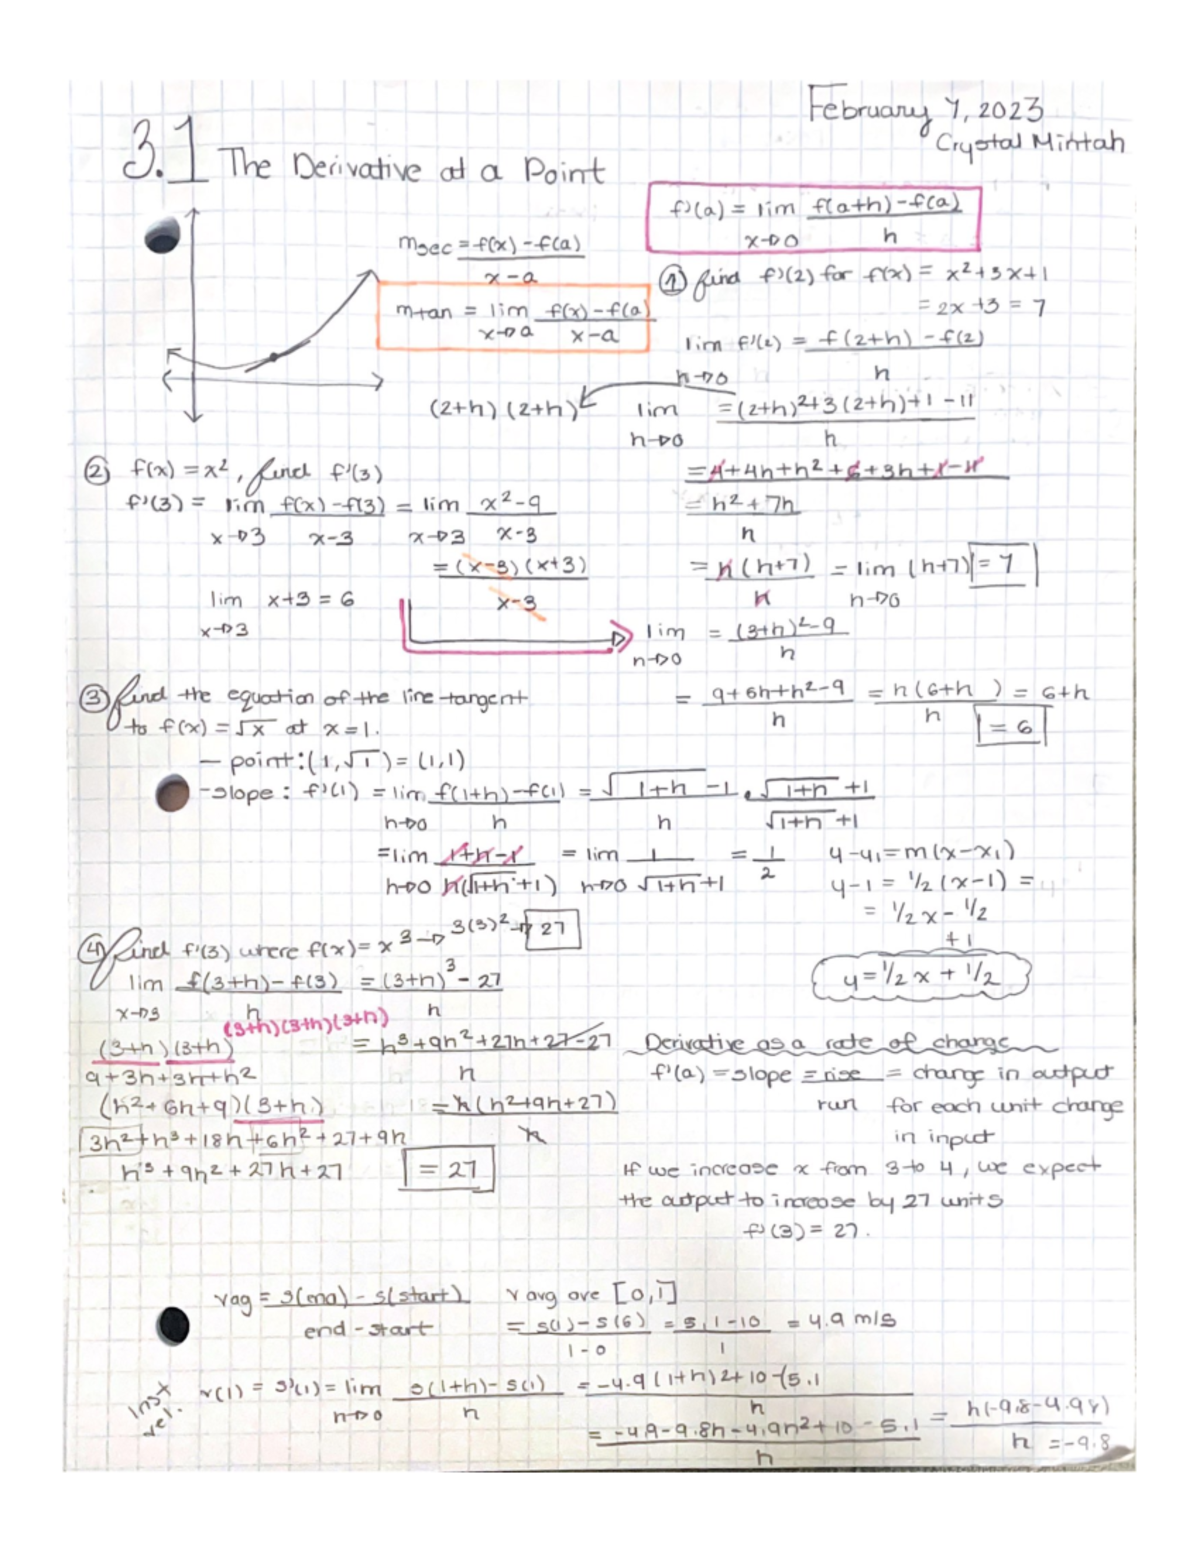 February 7, 2023
Crystal Mintah
3.1 The Derivative at a Point
f'(a) = lim f(a+h)-f(a)
x→0 h
msec = f(x)-f(a)
x-a
mtan = lim f(x)-f(a)
x→a x-a
① find f'(2) for f(x) = x²+3x+1
= 2x+3 = 7
lim f'(2) = f(2+h)-f(2)
h→0 h
(2+h)(2+h) lim = (2+h)²+3(2+h)+1-11
h→0 h
= 4+4h+h²+6+3h+1-11
= h²+7h
h
= h(h+7) = lim (h+7) = 7
h h→0
② f(x) = x², find f'(3)
f'(3) = lim f(x)-f(3) = lim x²-9
x→3 x-3 x→3 x-3
= (x-3)(x+3)
x-3
lim x+3 = 6
x→3
lim = (3+h)²-9
h→0 h
= 9+6h+h²-9 = h(6+h ) = 6+h
h h = 6
③ find the equation of the line tangent
to f(x) = √x at x=1.
- point: (1,√1) = (1,1)
-slope: f'(1) = lim f(1+h)-f(1) = √1+h -1 • √1+h +1
h→0 h h √1+h +1
=lim 1+h-1 = lim 1 = 1
h→0 h(√1+h +1) h→0 √1+h +1 2
y-y₁=m(x-x₁)
y-1 = ½(x-1) =
= ½x-½
+1
y=½x+½
④ find f'(3) where f(x) = x³ → 3(3)² → 27
lim f(3+h)-f(3) = (3+h)³-27
x→3 h h
(3+h)(3+h)(3+h)
(3+h)(3+h) = h³+9h²+27h+27-27
9+3h+3h+h² h
(h²+6h+9)(3+h) = h(h²+9h+27)
h
3h²+h³+18h+6h²+27+9h
h³+9h²+27h+27 = 27
Derivative as a rate of change
f'(a) = slope = rise = change in output
run for each unit change
in input
If we increase x from 3 to 4, we expect
the output to increase by 27 units
f'(3) = 27.
vag = s(end) - s(start) v avg ove [0,1]
end-start = s(1)-s(6) = 5.1-10 = 4.9 m/s
1-0 1
Inst vel.
v(1) = s'(1) = lim s(1+h)-s(1) = -4.9(1+h)2+10-(5.1
h→0 h h
= -4.9-9.8h-4.9h²+10-5.1 = h(-9.8-4.98)
h h = -9.8